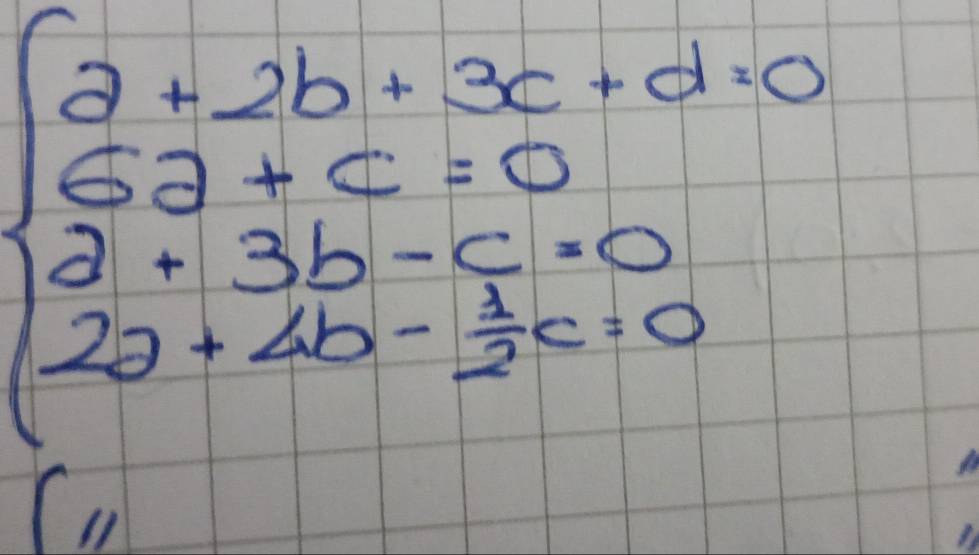 a + 2b + 3c + d = 0
6a + c = 0
a + 3b - c = 0
2a + 4b - 1/2 c = 0
" "
"